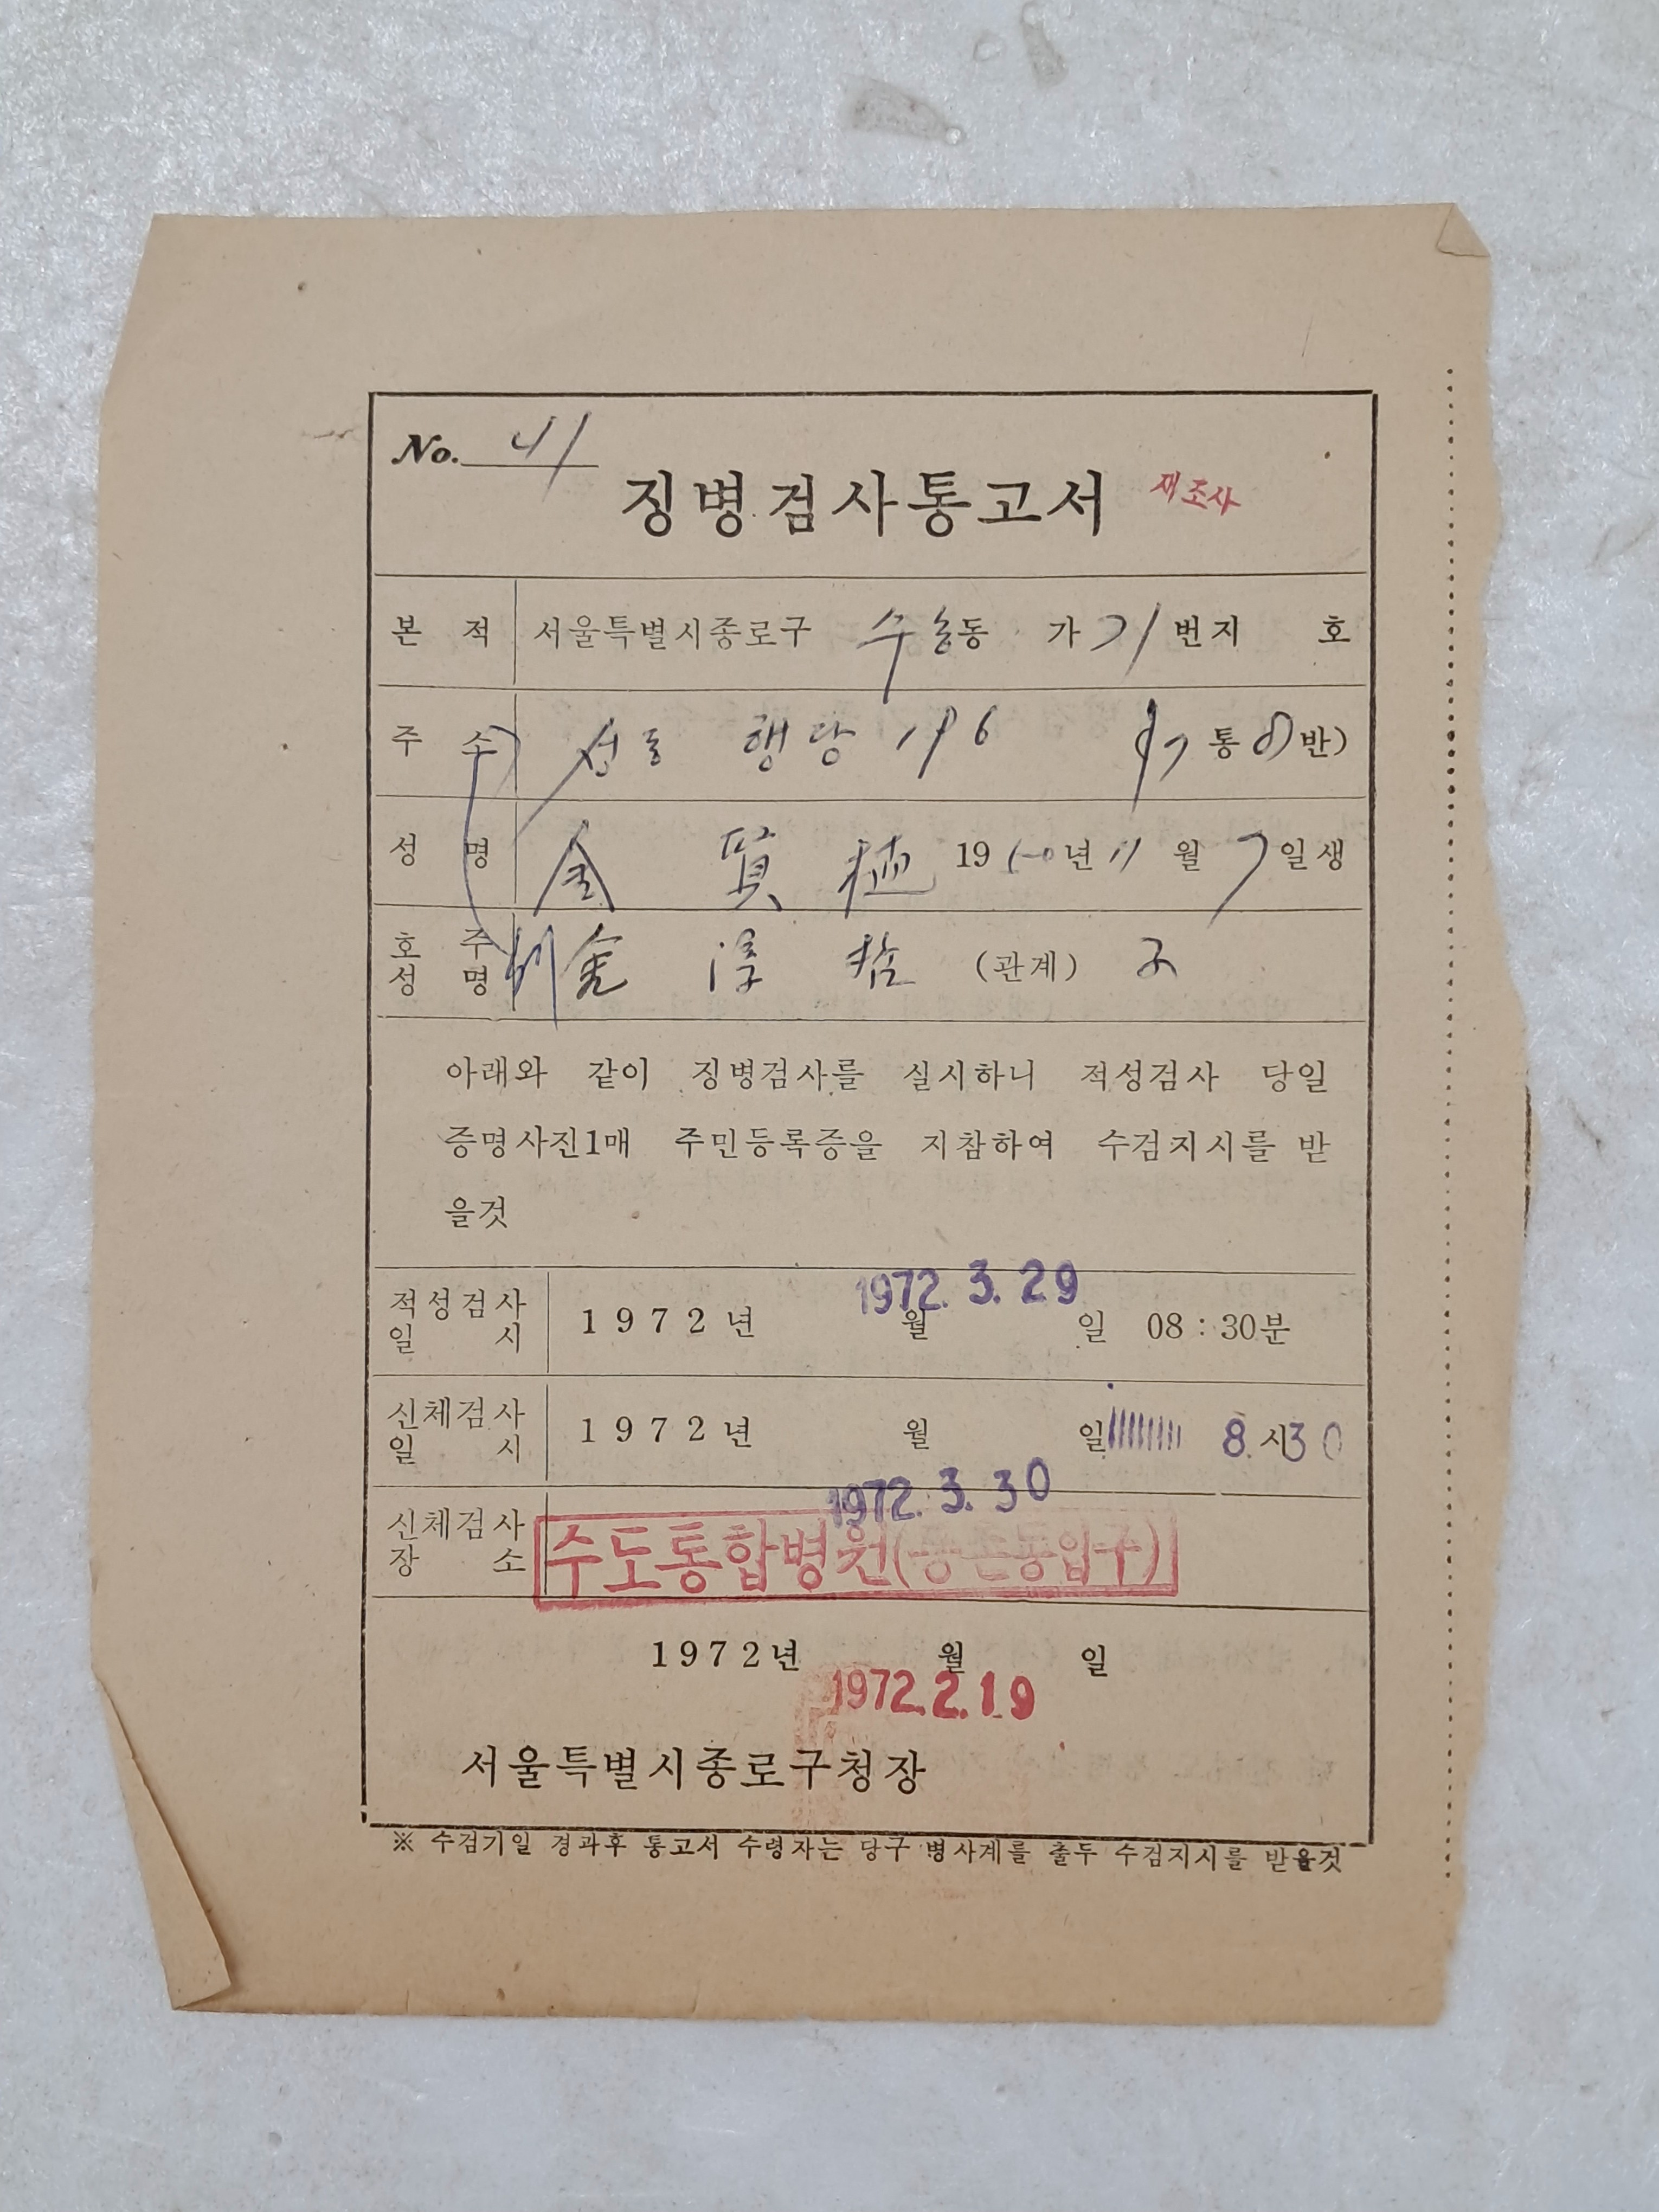 No. 41
징병검사통고서 재조사
본 적 서울특별시종로구 수송동 가 71 번지 호
주 소 성동 행당 196 통 반)
성 명 金 1950년 11월 7일생
호주성명 金 (관계) 子
아래와 같이 징병검사를 실시하니 적성검사 당일
증명사진1매 주민등록증을 지참하여 수검지시를 받
을것
적성검사일시 1972년 월 일 08:30분
1972. 3. 29
신체검사일시 1972년 월 일 8.시30
1972. 3. 30
신체검사장소 수도통합병원(등촌동입구)
1972년 월 일
1972. 2. 19
서울특별시종로구청장
※ 수검기일 경과후 통고서 수령자는 당구 병사계를 출두 수검지시를 받을것